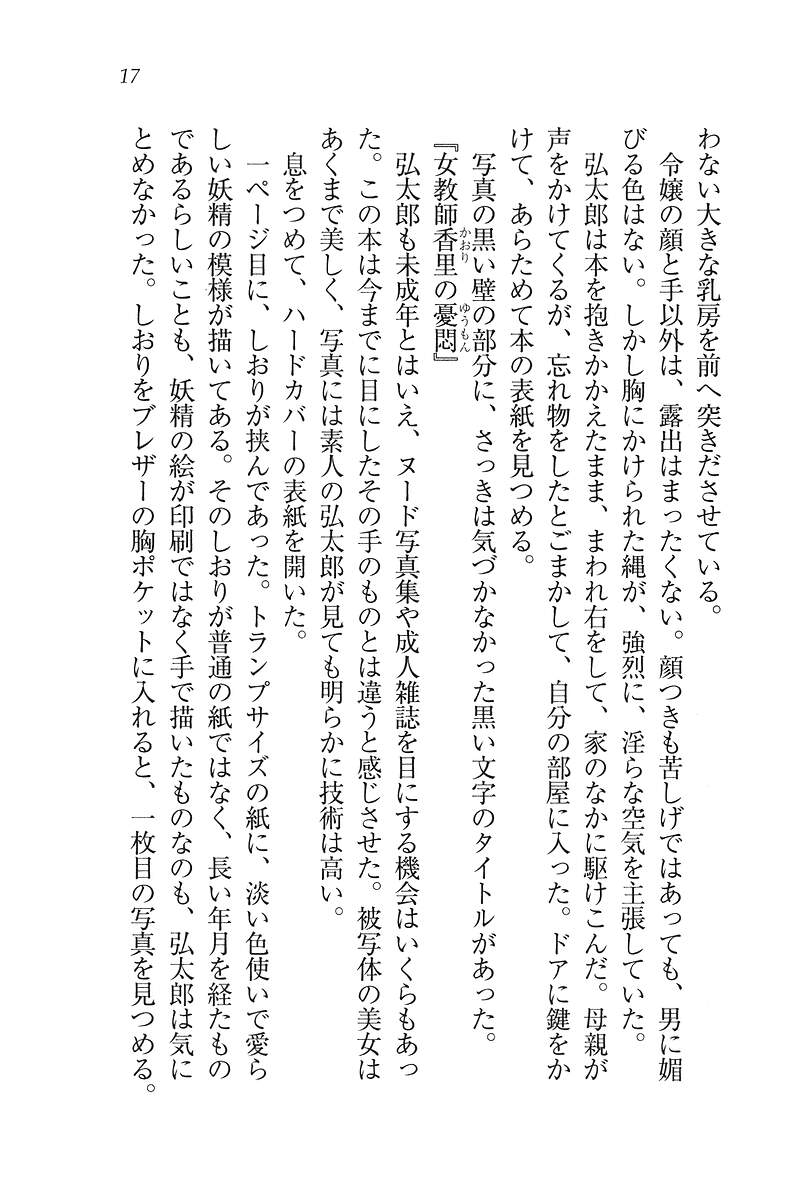 17
わない大きな乳房を前へ突きださせている。
　令嬢の顔と手以外は、露出はまったくない。顔つきも苦しげではあっても、男に媚
びる色はない。しかし胸にかけられた縄が、強烈に、淫らな空気を主張していた。
　弘太郎は本を抱きかかえたまま、まわれ右をして、家のなかに駆けこんだ。母親が
声をかけてくるが、忘れ物をしたとごまかして、自分の部屋に入った。ドアに鍵をか
けて、あらためて本の表紙を見つめる。
　写真の黒い壁の部分に、さっきは気づかなかった黒い文字のタイトルがあった。
『女教師香里（かおり）の憂悶（ゆうもん）』
　弘太郎も未成年とはいえ、ヌード写真集や成人雑誌を目にする機会はいくらもあっ
た。この本は今までに目にしたその手のものとは違うと感じさせた。被写体の美女は
あくまで美しく、写真には素人の弘太郎が見ても明らかに技術は高い。
　息をつめて、ハードカバーの表紙を開いた。
　一ページ目に、しおりが挟んであった。トランプサイズの紙に、淡い色使いで愛ら
しい妖精の模様が描いてある。そのしおりが普通の紙ではなく、長い年月を経たもの
であるらしいことも、妖精の絵が印刷ではなく手で描いたものなのも、弘太郎は気に
とめなかった。しおりをブレザーの胸ポケットに入れると、一枚目の写真を見つめる。